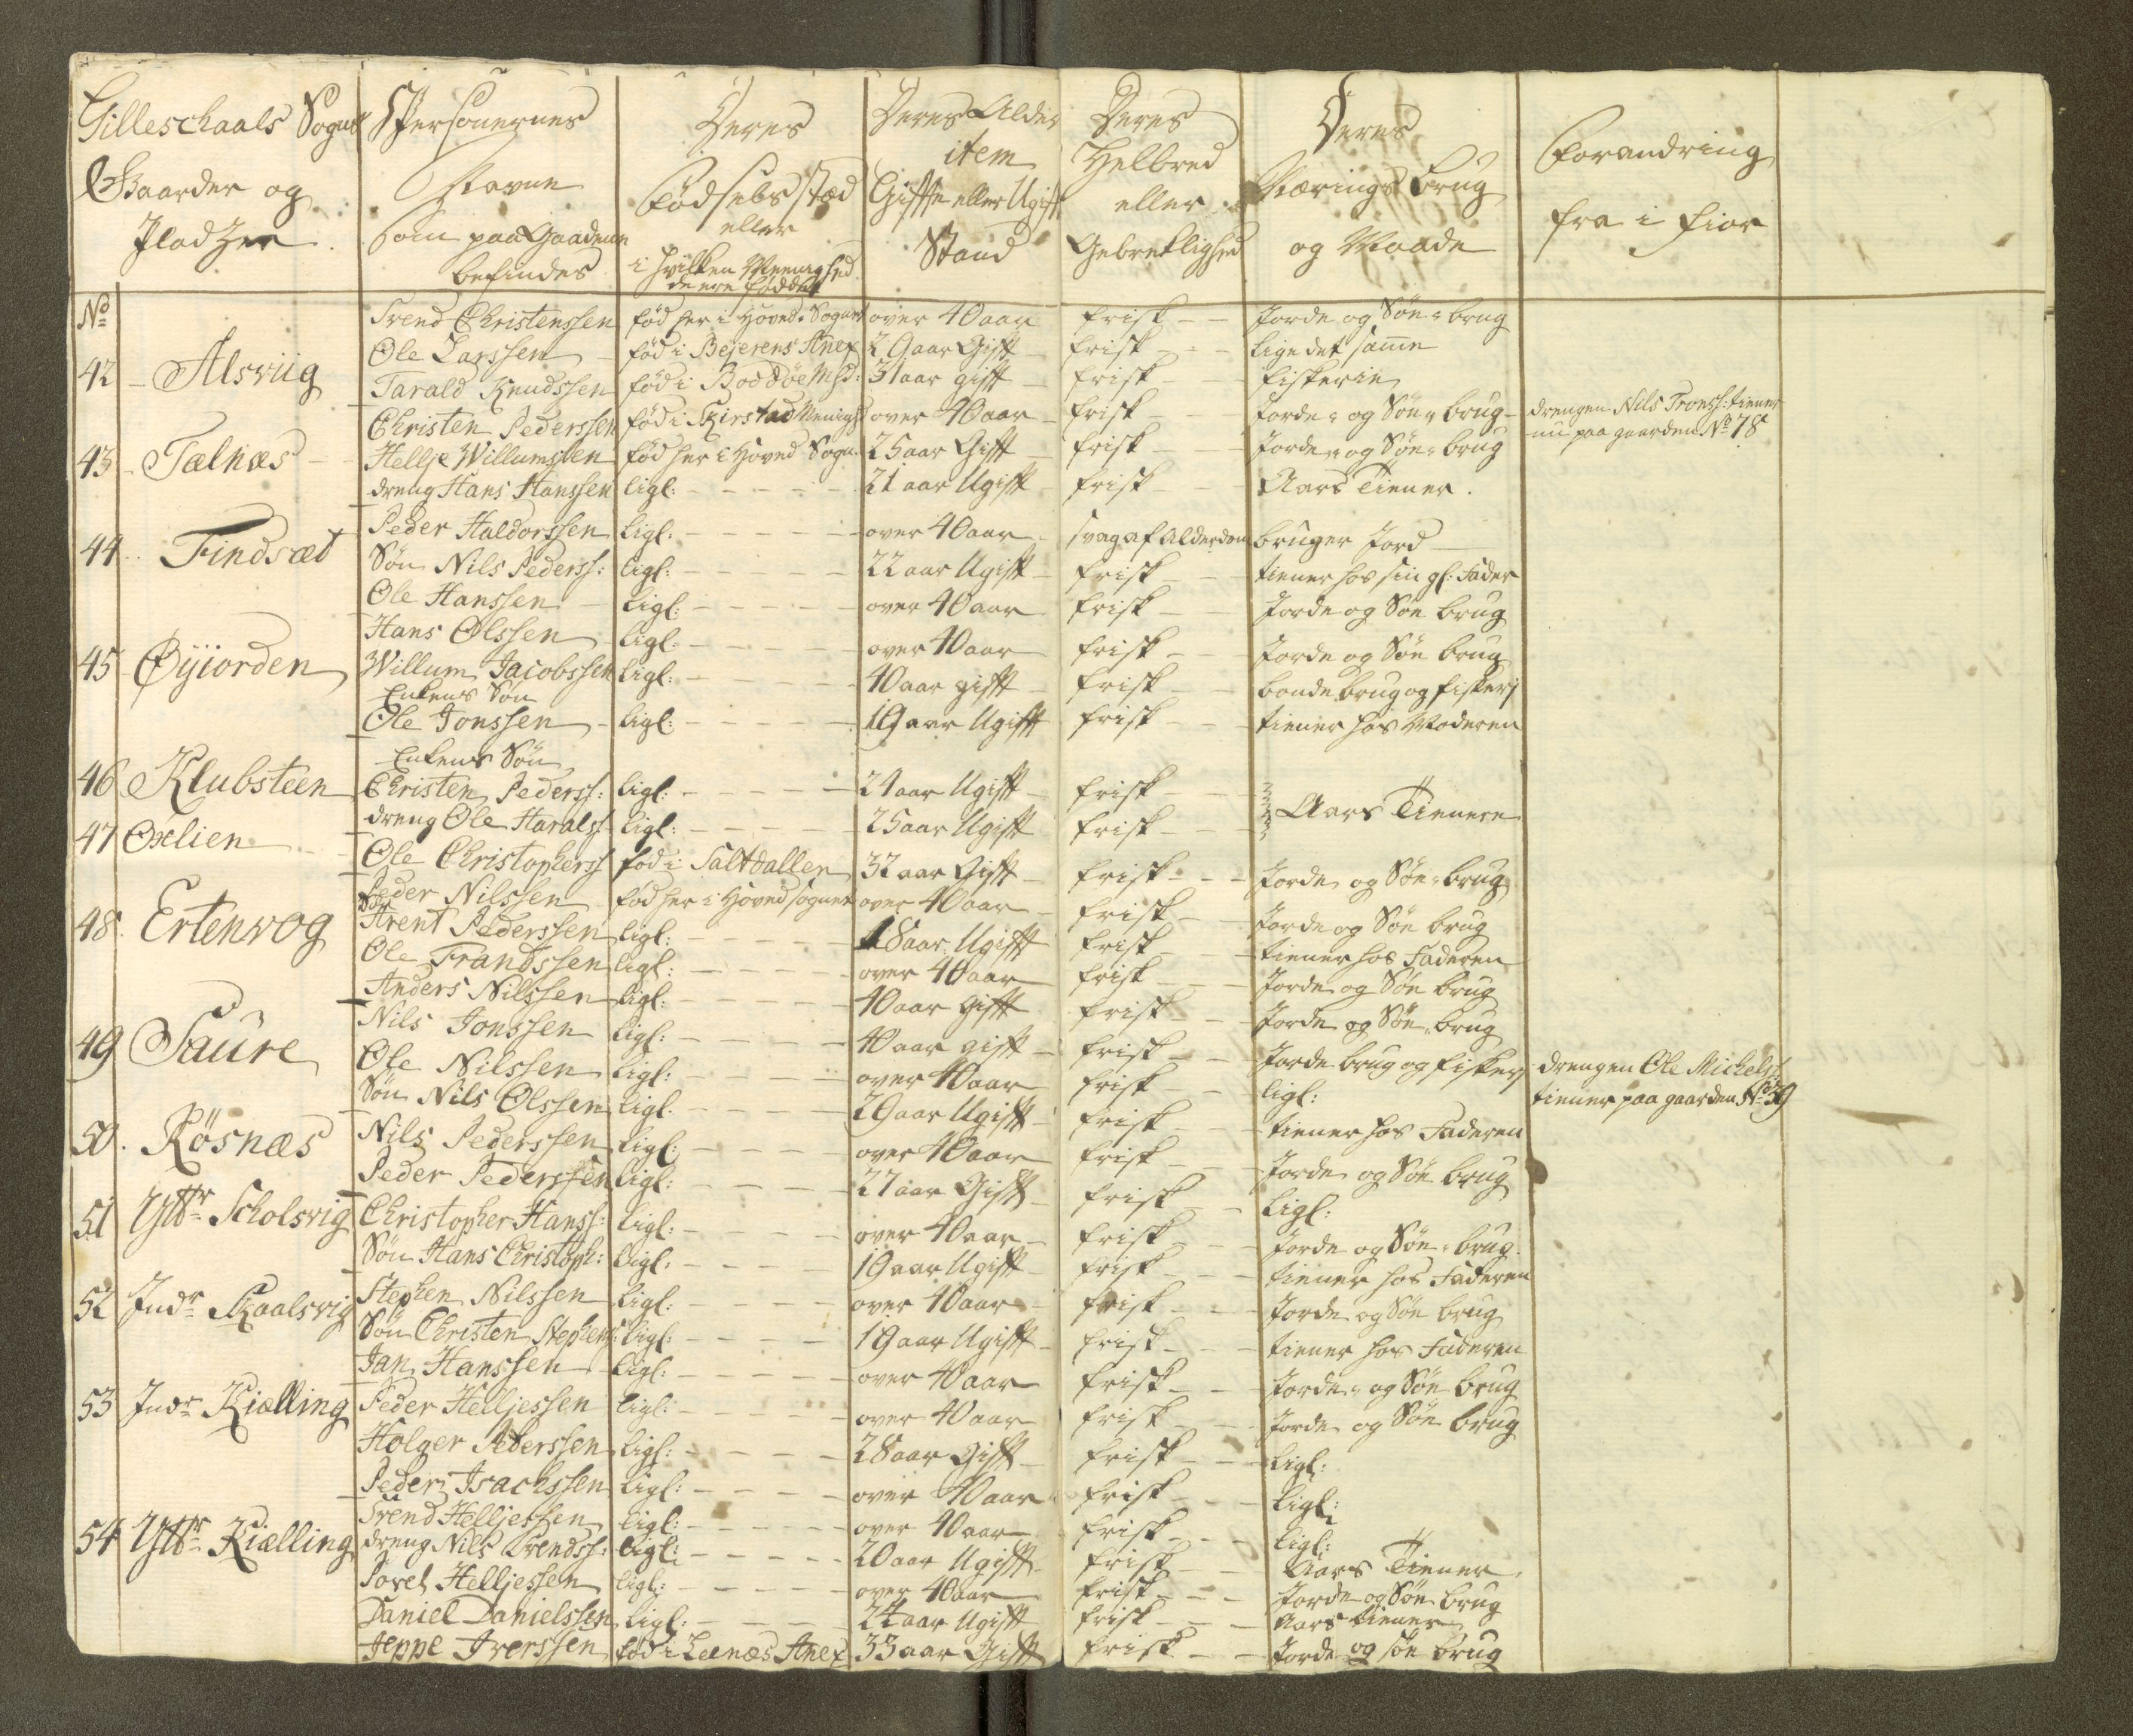 Gilleschaals Sogns
Gaarder og
Pladzer.
Personernes
Navne
som paa Gaardene
befindes
Deres
Fødselsstæd
eller
i hvilken Meenighed
de ere fødde
Deres Alder
item
Giffte eller Ugift
Stand
Deres
Helbred
eller
Gebreklighed
Deres
Nærings brug
og Maade
Forandring
fra i Fior
No
Trend Christenssen fød her i Hoved-Sognet over 40 aar frisk Jorde og Søe-brug
Ole Larssen fød i Bejerens Anex 29 aar Gift frisk lige det samme
42 Alsviig Tarald Knudssen fød i Boddøe Msd: 31 aar gift frisk Fiskerie
Christen Pederssen fød i Skirstad Menigh: over 40 aar frisk Jorde- og Søe-brug drengen Nils Tronss: tiener
nu paa gaarden No 78
43 Tælnæs Hellje Willumssen fød her i Hoved Sogn. 25 aar Gift frisk Jorde- og Søe-brug
dreng Hans Hanssen ligl: 21 aar Ugift frisk Aars Tiener.
Peder Haldorssen ligl: over 40 aar svag af Alderdom bruger Jord
44 Findsæt Søn Nils Pederss: ligl: 22 aar Ugift frisk tiener hos sin gl: Fader
Ole Hanssen ligl: over 40 aar frisk Jorde og Søe brug
Hans Olssen ligl: over 40 aar frisk Jorde og Søe brug
45 Øyiorden Willum Jacobssen ligl: 40 aar gifft frisk bonde brug og fiskerj
Enkens Søn
Ole Jonssen ligl: 19 aar Ugifft frisk tiener hos Moderen
Enkens Søn
46 Klubsteen Christen Pederss: ligl: 21 aar Ugift frisk Aars Tienere
47 Oxlien dreng Ole Haralss ligl: 25 aar Ugift frisk
Ole Christopherss fød i Saltdallen 32 aar Gifft frisk Jorde og Søe-brug
Peder Nilssen fød her i Hoved sognet over 40 aar frisk Jorde og Søe brug
48. Ertenvog Søn Arent Pederssen ligl: 18 aar Ugifft frisk tiener hos Faderen
Ole Frandssen ligl: over 40 aar frisk Jorde og Søe brug
Anders Nilssen ligl: 40 aar Gifft frisk Jorde og Søe-brug
Nils Jonssen ligl: 40 aar gift frisk Jorde brug og fiskerj drengen Ole Michelss
tiener paa gaarden No 39
49 Saure Ole Nilssen ligl: over 40 aar frisk ligl:
Søn Nils Olssen ligl: 20 aar Ugift frisk tiener hos Faderen
50. Røsnæs Nils Pederssen ligl: over 40 aar frisk Jorde og Søe brug
Peder Pederssen ligl: 27 aar Gifft frisk ligl:
51 Yttr Scholsvig Christopher Hanss: ligl: over 40 aar frisk Jorde og Søe-brug.
Søn Hans Christoph: ligl: 19 aar Ugift frisk tiener hos Faderen
52 Indr Skaalsvig Stephen Nilssen ligl: over 40 aar frisk Jorde og Søe brug
Søn Christen Stephens: ligl: 19 aar Ugifft frisk tiener hos Faderen
Jan Hanssen ligl: over 40 aar frisk Jorde- og Søe brug
53 Indr Kiælling Peder Helljessen ligl: over 40 aar frisk Jorde og Søe brug
Holger Pederssen ligl: 28 aar Gifft frisk ligl:
Peder Isachssen ligl: over 40 aar frisk ligl:
Trend Helljessen ligl: over 40 aar frisk ligl:
54 Yttr Kiælling dreng Nils Trendss: ligl: 20 aar Ugifft frisk Aars Tiener.
Povel Helljessen ligl: over 40 aar frisk Jorde og Søe brug
Daniel Danielssen ligl: 24 aar Ugift frisk Aars tiener
Jeppe Iverssen fød i Leenæs Anex 33 aar Gifft frisk Jorde og søe brug